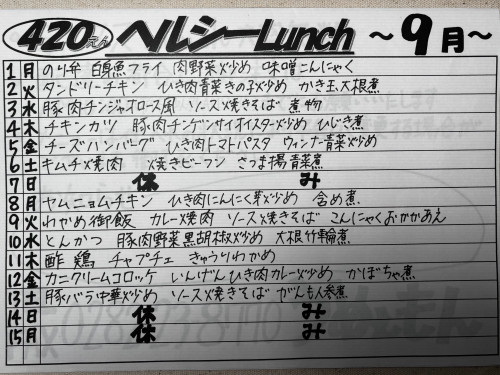 420えん ヘルシーLunch ～9月～
1 月 のり弁 白身魚フライ 肉野菜炒め 味噌こんにゃく
2 火 タンドリーチキン ひき肉青菜きの子炒め かき玉、大根煮
3 水 豚肉チンジャオロース風 ソース焼きそば 煮物
4 木 チキンカツ 豚肉チンゲンサイオイスター炒め ひじき煮
5 金 チーズハンバーグ ひき肉トマトパスタ ウィンナー青菜炒め
6 土 キムチ焼肉 焼きビーフン さつま揚青菜煮
7 日 休み
8 月 ヤムニョムチキン ひき肉にんにく芽炒め 含め煮
9 火 わかめ御飯 カレー焼肉 ソース焼きそば こんにゃくおかかあえ
10 水 とんかつ 豚肉野菜黒胡椒炒め 大根竹輪煮
11 木 酢鶏 チャプチェ きゅうりわかめ
12 金 カニクリームコロッケ いんげんひき肉カレー炒め かぼちゃ煮
13 土 豚バラ中華炒め ソース焼きそば がんも人参煮
14 日 休み
15 月 休み